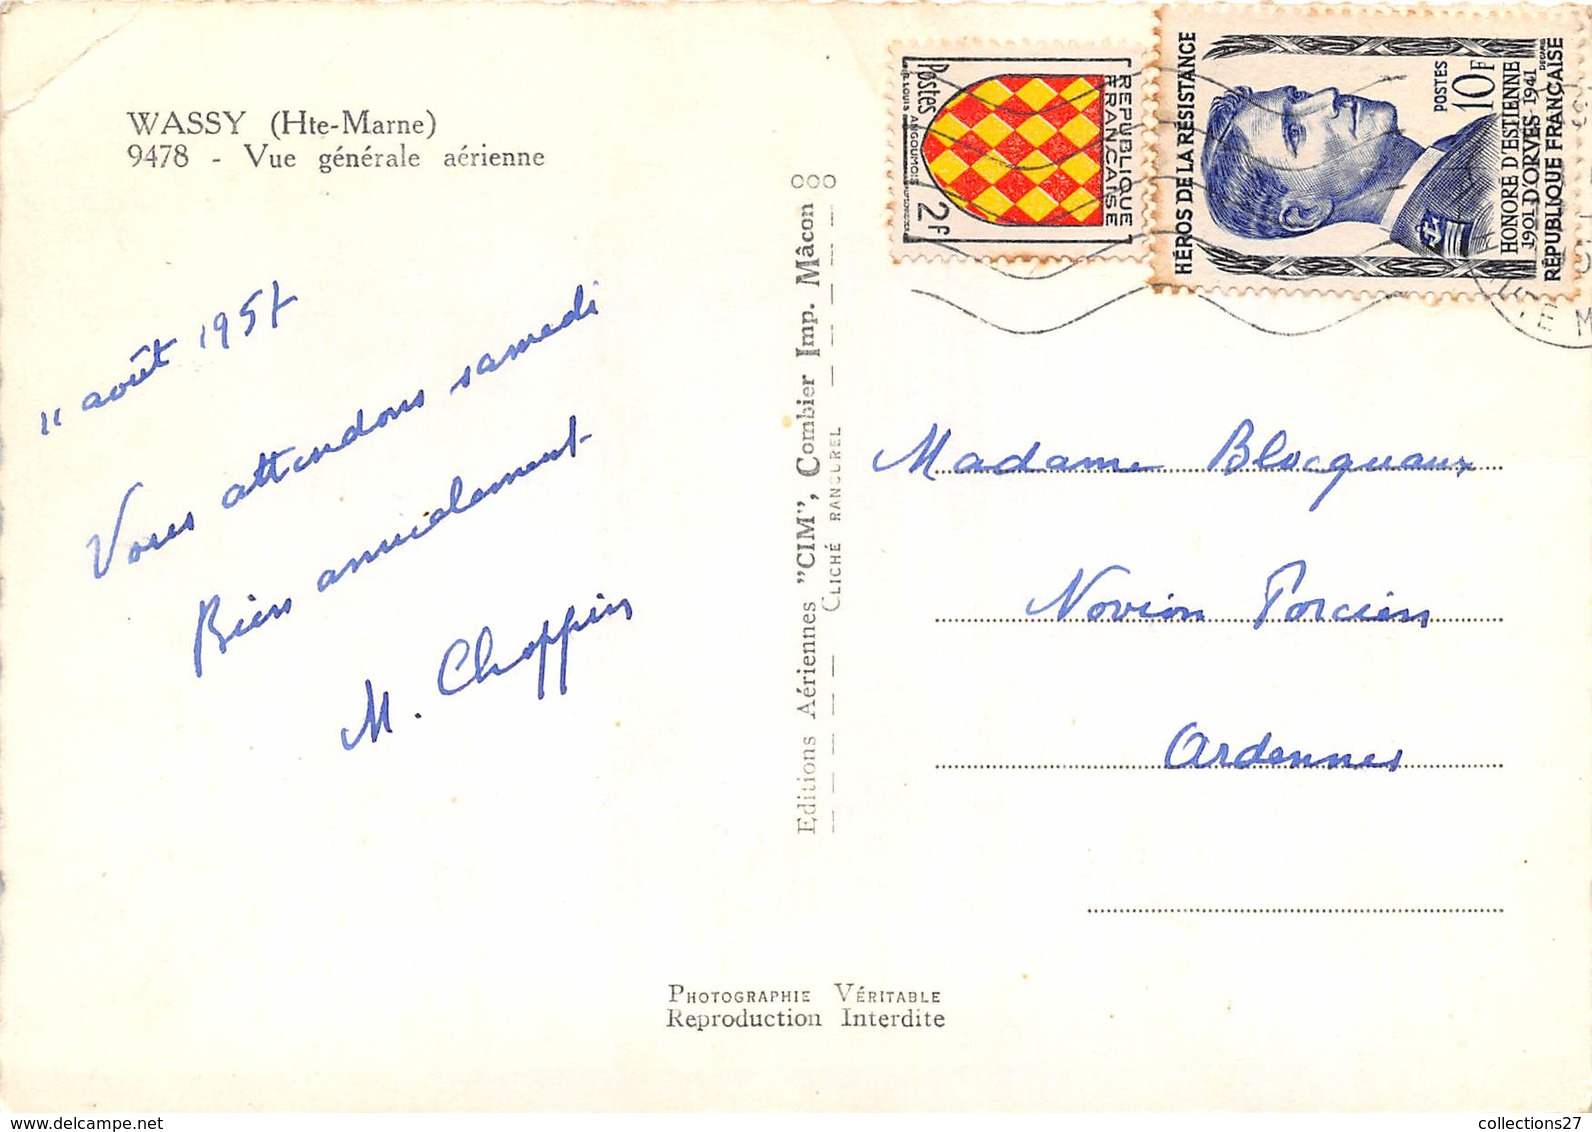 WASSY (Hte-Marne)
9478 - Vue générale aérienne
11 août 1957
Vous attendons samedi
Bien amicalement
M. Choppin
Editions Aériennes "CIM", Combier Imp. Mâcon
CLICHÉ RANCUREL
REPUBLIQUE
FRANÇAISE
Postes
2F
ANGOUMOIS
HÉROS DE LA RÉSISTANCE
POSTES
10F
HONORÉ D'ESTIENNE
1901 D'ORVES 1941
RÉPUBLIQUE FRANÇAISE
DECARIS
Madame Blocquaux
Novion Porcien
Ardennes
PHOTOGRAPHIE VÉRITABLE
Reproduction Interdite
collections27